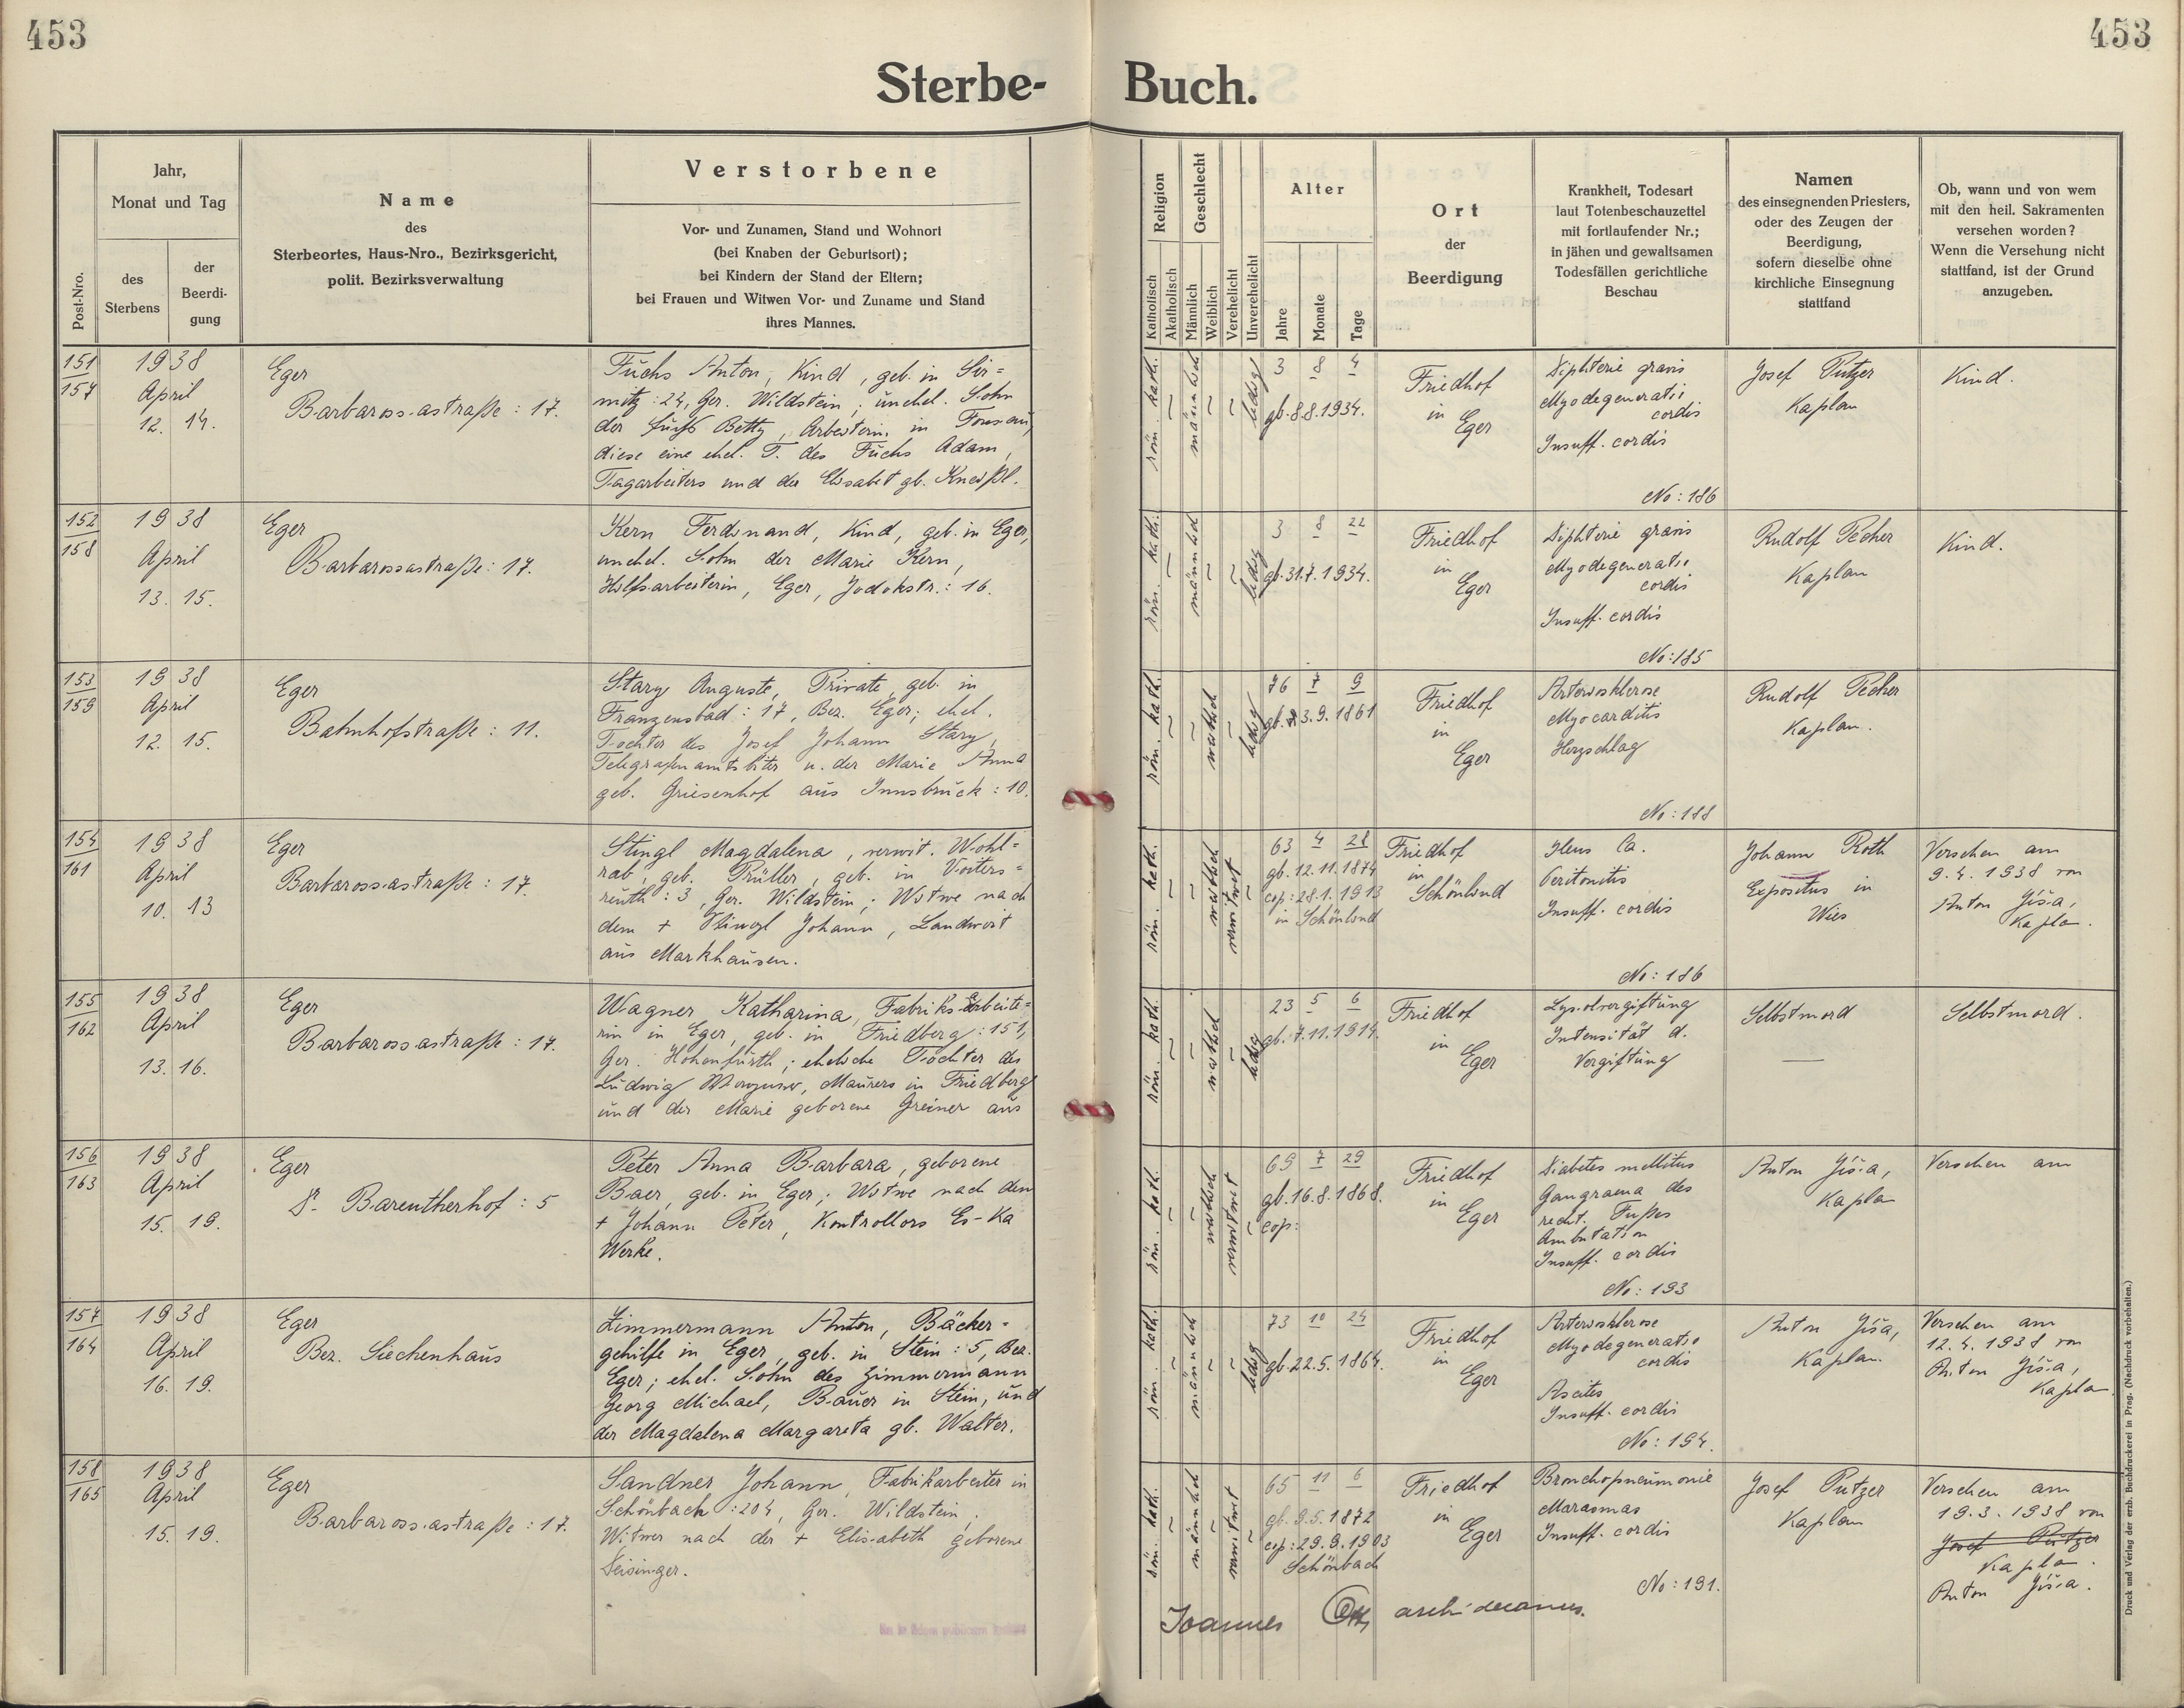 453
453
Sterbe- Buch.
Post-Nro.
Jahr,
Monat und Tag
des
Sterbens
der
Beerdi-
gung
Name
des
Sterbeortes, Haus-Nro., Bezirksgericht,
polit. Bezirksverwaltung
Verstorbene
Vor- und Zunamen, Stand und Wohnort
(bei Knaben der Geburtsort);
bei Kindern der Stand der Eltern;
bei Frauen und Witwen Vor- und Zuname und Stand
ihres Mannes.
Religion
Katholisch
Akatholisch
Geschlecht
Männlich
Weiblich
Verehelicht
Unverehelicht
Alter
Jahre
Monate
Tage
Ort
der
Beerdigung
Krankheit, Todesart
laut Totenbeschauzettel
mit fortlaufender Nr.;
in jähen und gewaltsamen
Todesfällen gerichtliche
Beschau
Namen
des einsegnenden Priesters,
oder des Zeugen der
Beerdigung,
sofern dieselbe ohne
kirchliche Einsegnung
stattfand
Ob, wann und von wem
mit den heil. Sakramenten
versehen worden?
Wenn die Versehung nicht
stattfand, ist der Grund
anzugeben.
151
157
1938
April
12. 14.
Eger
Barbarossastraße: 17.
Fuchs Anton, Kind, geb. in Sir=
mitz: 24, Ger. Wildstein; unehel. Sohn
der Fuchs Betty, Arbeiterin in
diese eine ehel. T. des Fuchs Adam,
Tagarbeiters und der Elisabet gb. Kneißl.
röm. kath.
männlich
ledig
3 8 4
gb. 8.8.1934.
Friedhof
in
Eger
Diphterie gravis
Myodegeneratio
cordis
Insuff. cordis
No: 186
Josef Putzer
Kaplan
Kind.
152
158
1938
April
13. 15.
Eger
Barbarossastraße: 17.
Kern Ferdinand, Kind, geb. in Eger,
unehel. Sohn der Marie Kern,
Hilfsarbeiterin, Eger, Jodokstr.: 16.
röm. kath.
männlich
ledig
3 8 22
gb. 31.7.1934.
Friedhof
in
Eger
Diphterie gravis
Myodegeneratio
cordis
Insuff. cordis
No: 185
Rudolf Pecher
Kaplan
Kind.
153
159
1938
April
12. 15.
Eger
Bahnhofstraße: 11.
Stary Auguste, Private, geb. in
Franzensbad: 17, Bez. Eger; ehel.
Tochter des Josef Johann Stary,
Telegrafenamtsleiter u. der Marie Anna
geb. Griesenhof aus Innsbruck: 10.
röm. kath.
weiblich
ledig
76 7 9
gb. 3.9.1861
Friedhof
in
Eger
Arteriosklerose
Myocarditis
Herzschlag
No: 188
Rudolf Pecher
Kaplan.
154
161
1938
April
10. 13
Eger
Barbarossastraße: 17.
Stingl Magdalena, verwit. Wohl=
rab, geb. Trüller, geb. in Voiters=
reuth: 3, Ger. Wildstein; Witwe nach
dem + Stingl Johann, Landwirt
aus Markhausen.
röm. kath.
weiblich
verwitwet
63 4 28
gb. 12.11.1874
cop: 28.1.1913
in Schönlind
Friedhof
in
Schönlind
Ileus Ca.
Peritonitis
Insuff. cordis
No: 186
Johann Roth
Expositus in
Wies
Versehen am
9.4.1938 von
Anton Jíša,
Kapla.
155
162
1938
April
13. 16.
Eger
Barbarossastraße: 17.
Wagner Katharina, Fabriksarbeite=
rin in Eger, geb. in Friedberg: 151,
Ger. Hohenfurth; eheliche Tochter des
Ludwig Wagner, Maurers in Friedberg
und der Marie geborene Greiner aus
röm. kath.
weiblich
ledig
23 5 6
gb. 7.11.1914.
Friedhof
in
Eger
Lysolvergiftung
Intensität d.
Vergiftung
Selbstmord
Selbstmord.
156
163
1938
April
15. 19.
Eger
Bareutherhof: 5
Peter Anna Barbara, geborene
Baer, geb. in Eger; Witwe nach dem
+ Johann Peter, Kontrollors Es-Ka
Werke.
röm. kath.
weiblich
verwitwet
69 7 29
gb. 16.8.1868.
cop:
Friedhof
in
Eger
Diabetes mellitus
Gangraena des
recht. Fußes
Ambutation
Insuff. cordis
No: 193
Anton Jíša,
Kapla
Versehen am
157
164
1938
April
16. 19.
Eger
Bez. Siechenhaus
Zimmermann Anton, Bäcker=
gehilfe in Eger, geb. in Stein: 5, Bez.
Eger; ehel. Sohn des Zimmermann
Georg Michael, Bauer in Stein, und
der Magdalena Margareta gb. Walter.
röm. kath.
männlich
ledig
73 10 24
gb. 22.5.1864.
Friedhof
in
Eger
Arteriosklerose
Myodegeneratio
cordis
Ascites
Insuff. cordis
No: 194.
Anton Jíša,
Kaplan.
Versehen am
12.4.1938 von
Anton Jíša,
Kapla
158
165
1938
April
15. 19.
Eger
Barbarossastraße: 17.
Sandner Johann, Fabrikarbeiter in
Schönbach: 204, Ger. Wildstein;
Witwer nach der + Elisabeth geborene
Deisinger.
röm. kath.
männlich
verwitwet
65 11 6
gb. 9.5.1872
cop: 29.9.1903
Schönbach
Friedhof
in
Eger
Bronchopneumonie
Marasmas
Insuff. cordis
No: 191.
Josef Putzer
Kaplan
Versehen am
19.3.1938 von
Josef Putzer
Kapla.
Anton Jíša.
Joannes Ott, archidecanus.
Druck und Verlag der erzb. Buchdruckerei in Prag. (Nachdruck vorbehalten.)